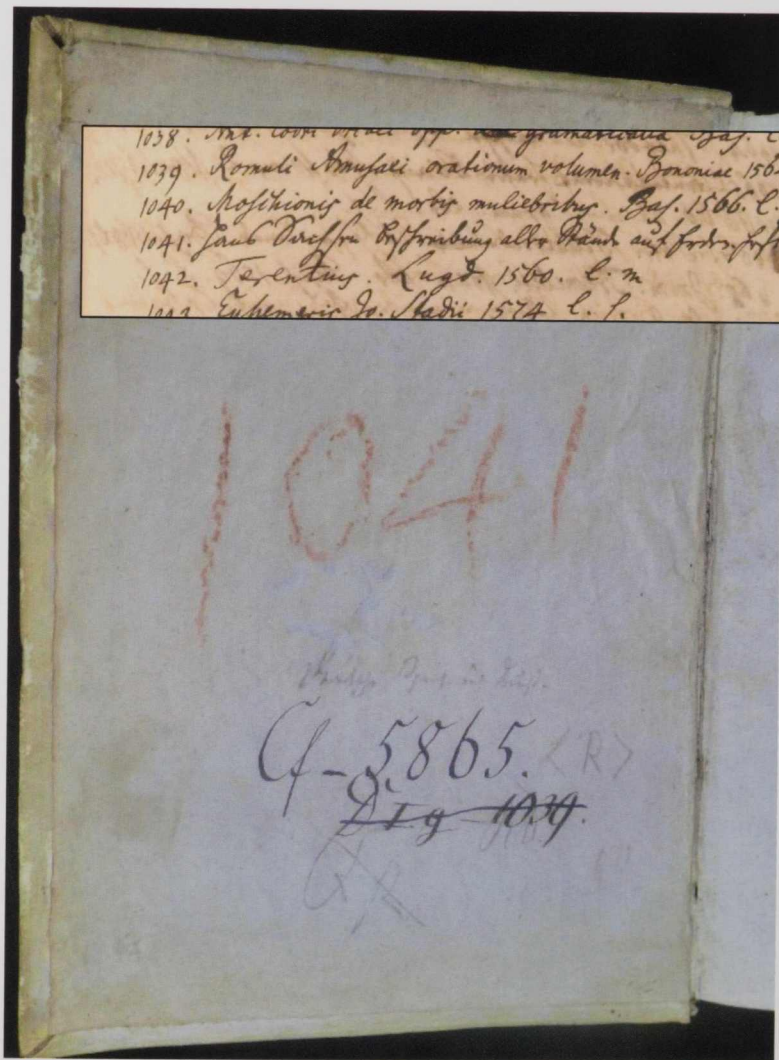 1038. Ant. opp. grammaticalia Bas.
1039. Romuli Amasaei orationum volumen. Bononiae 156
1040. Moschionis de morbis muliebribus. Bas. 1566. l.
1041. Hans Sachsen beschreibung aller Stände auf Erden.
1042. Terentius. Lugd. 1560. l. m
1043. Ephemeris Jo. Stadii 1574 l. f.
1041
Cf - 5865. <R>
1039.